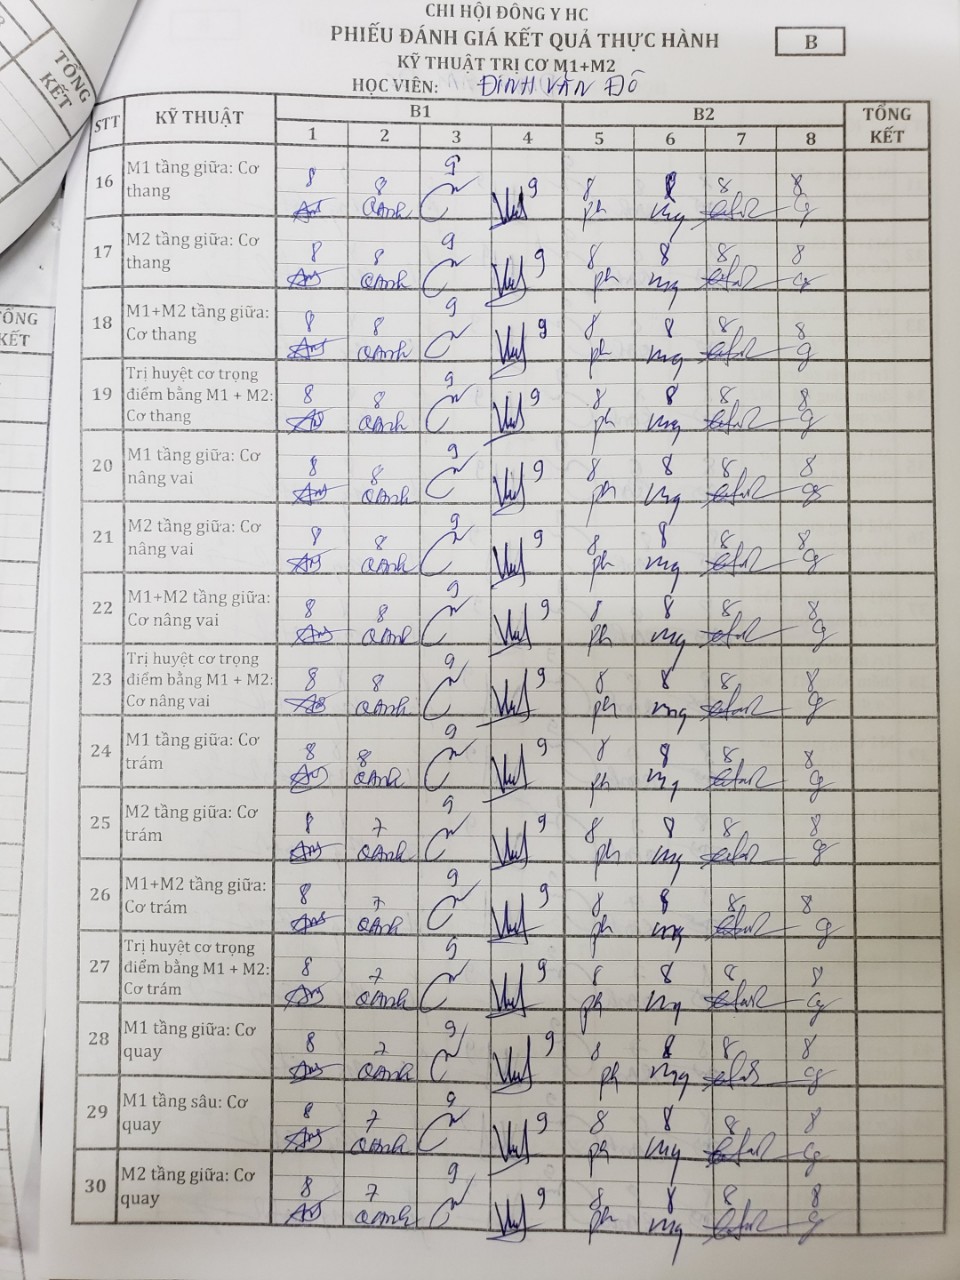 TỔNG
KẾT
CHI HỘI ĐÔNG Y HC
PHIẾU ĐÁNH GIÁ KẾT QUẢ THỰC HÀNH
B
KỸ THUẬT TRỊ CƠ M1+M2
HỌC VIÊN: ĐINH VĂN ĐÔ
STT KỸ THUẬT B1 B2 TỔNG KẾT
1 2 3 4 5 6 7 8
16 M1 tầng giữa: Cơ thang 8 8 9 9 8 8 8 8
Oanh ph mg
17 M2 tầng giữa: Cơ thang 8 8 9 9 8 8 8 8
Oanh ph mg
ỔNG
KẾT
18 M1+M2 tầng giữa: Cơ thang 8 8 9 9 8 8 8 8
Oanh ph mg
19 Trị huyệt cơ trọng điểm bằng M1 + M2: Cơ thang 8 8 9 9 8 8 8 8
Oanh ph mg
20 M1 tầng giữa: Cơ nâng vai 8 8 9 9 8 8 8 8
Oanh ph mg
21 M2 tầng giữa: Cơ nâng vai 8 8 9 9 8 8 8 8
Oanh ph mg
22 M1+M2 tầng giữa: Cơ nâng vai 8 8 9 9 8 8 8 8
Oanh ph mg
23 Trị huyệt cơ trọng điểm bằng M1 + M2: Cơ nâng vai 8 8 9 9 8 8 8 8
Oanh ph mg
24 M1 tầng giữa: Cơ trám 8 8 9 9 8 8 8 8
Oanh ph mg
25 M2 tầng giữa: Cơ trám 8 7 9 9 8 8 8 8
Oanh ph mg
26 M1+M2 tầng giữa: Cơ trám 8 7 9 9 8 8 8 8
Oanh ph mg
27 Trị huyệt cơ trọng điểm bằng M1 + M2: Cơ trám 8 7 9 9 8 8 8 8
Oanh ph mg
28 M1 tầng giữa: Cơ quay 8 7 9 9 8 8 8 8
Oanh ph mg
29 M1 tầng sâu: Cơ quay 8 7 9 9 8 8 8 8
Oanh ph mg
30 M2 tầng giữa: Cơ quay 8 7 9 9 8 8 8 8
Oanh ph mg